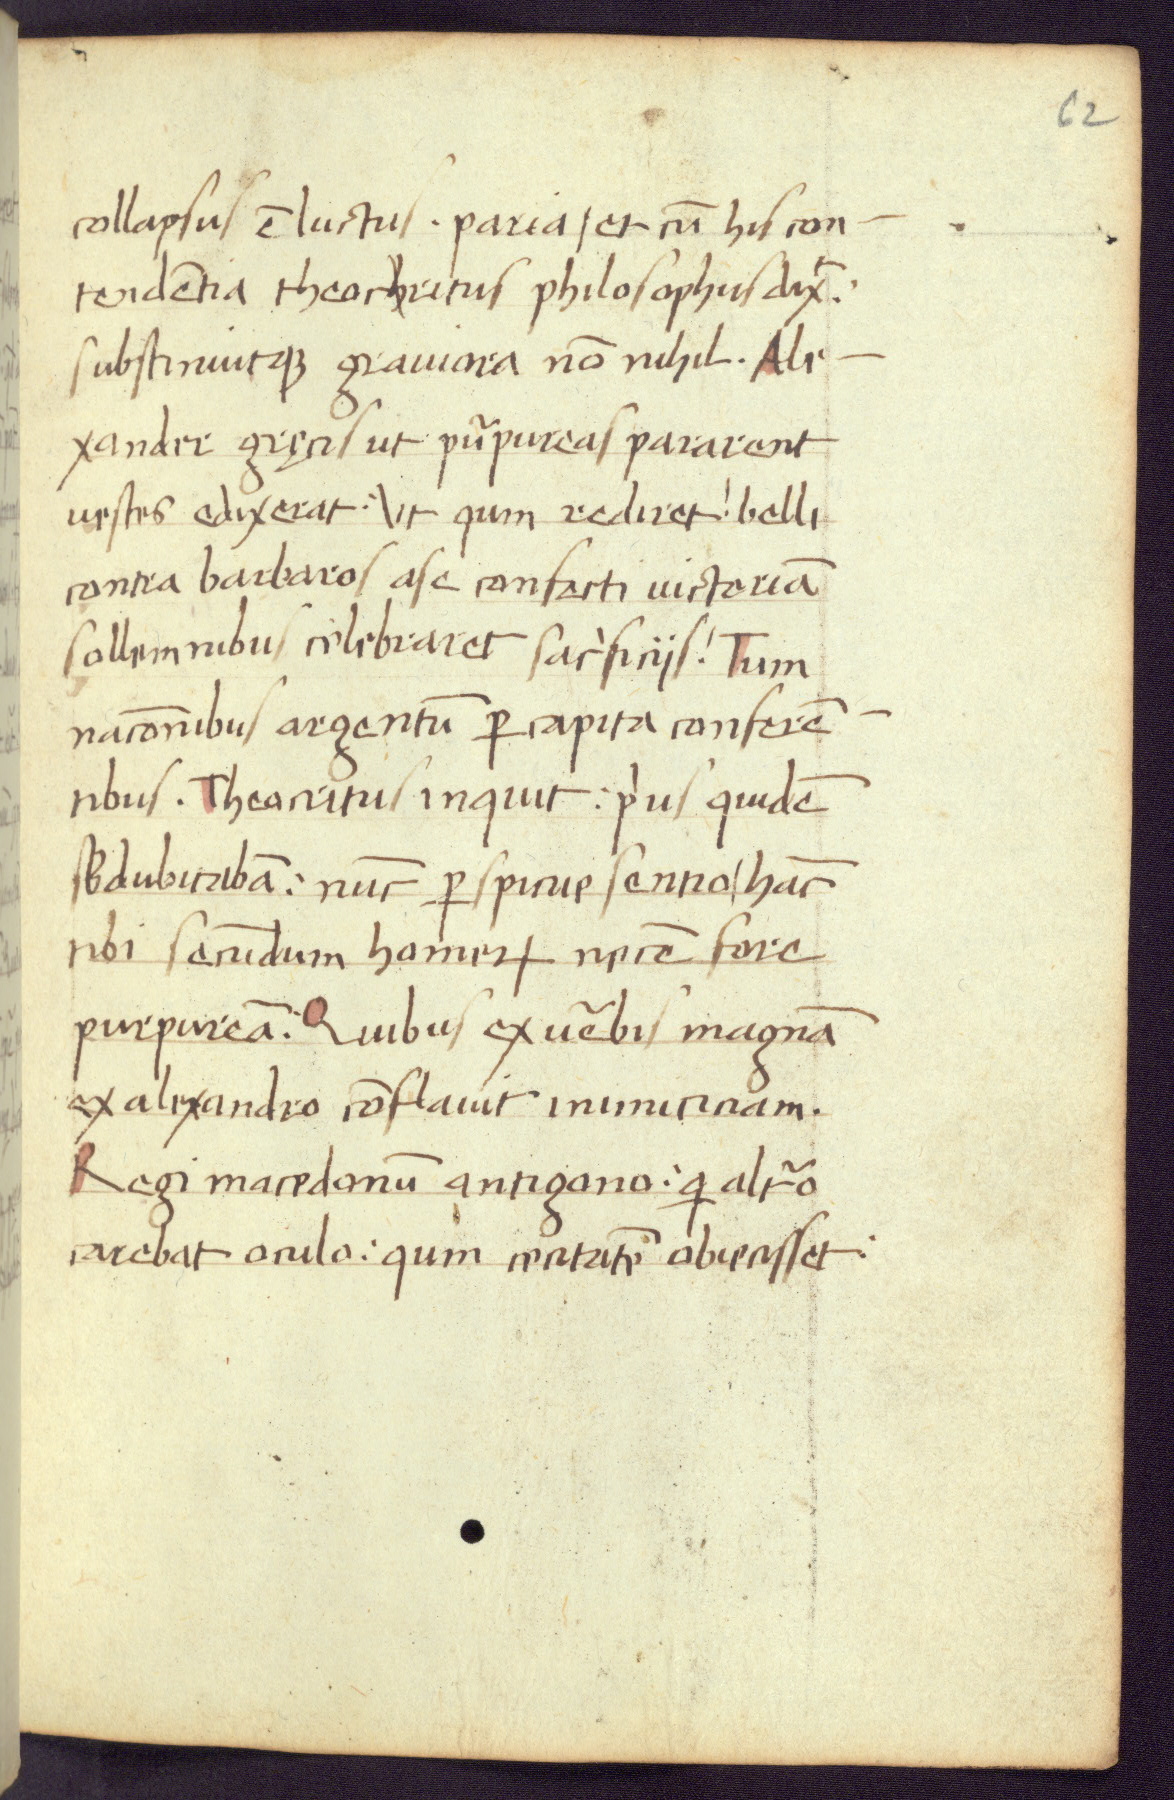 62
collapsus ē luctus . paria / et cū his con-
tendētia theochritus philosophus dixᵗ :
substinuitqꝫ grauiora nō nihil . Ale-
xander gręcis ut pur̃pureas pararent
uestes edixerat : Vt qum rediret ! belli
contra barbaros ase confecti uictoriā
sollemnibus celebraret sacⁱficijs ! Tum
nacōnibus argentū ꝑ capita conferē-
tibus . Theocritus inquit : pⁱus quidē
subdubitabā : nūc ꝑspicue sentio / hāc
tibi secūdum homerū necē fore
purpureā : Quibus ex ũebis magnā
ex alexandro cōflauit inimiciciam .
Regi macedonū antigono : qi altr̃o
carebat oculo : qum cecitatē obiecisset :